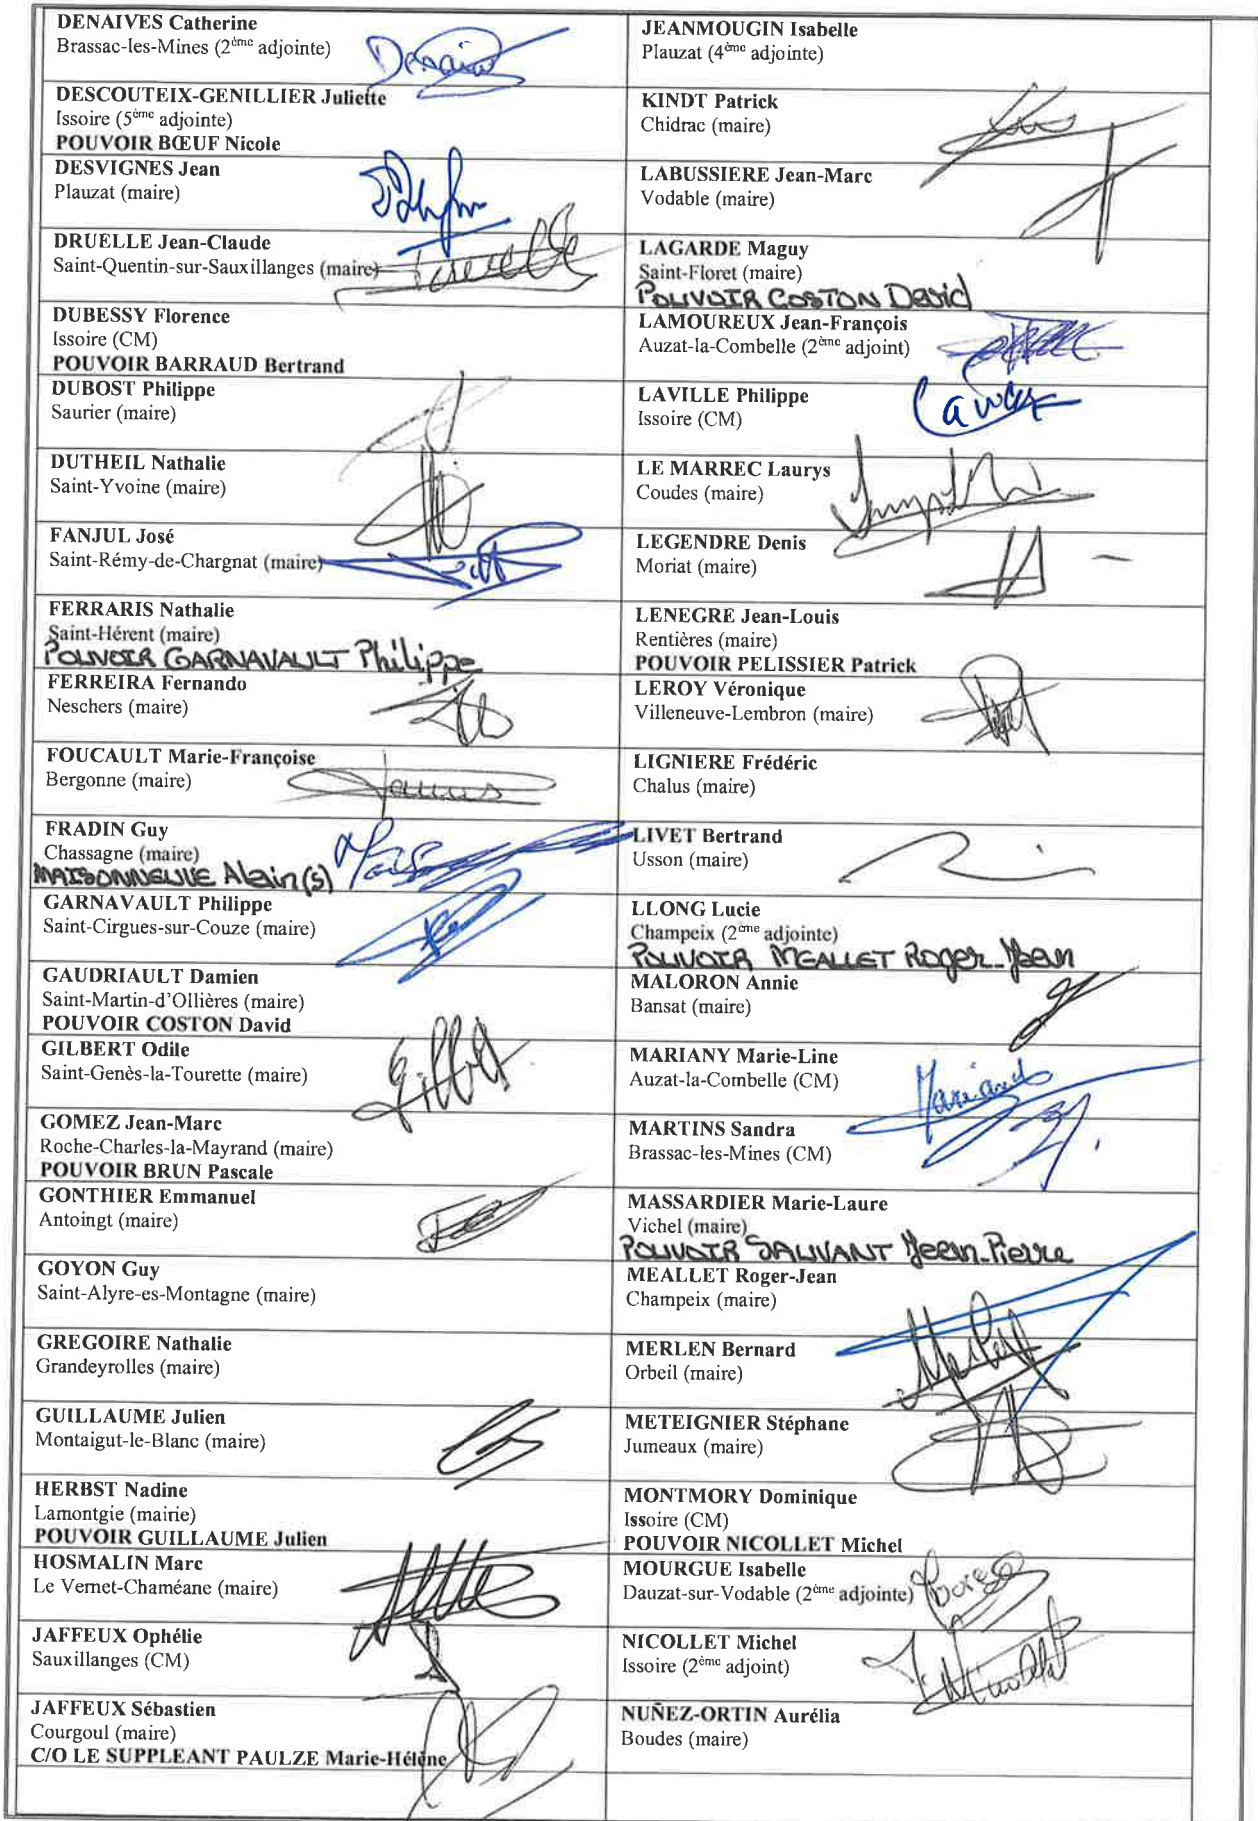 DENAIVES Catherine
Brassac-les-Mines (2ème adjointe)
DESCOUTEIX-GENILLIER Juliette
Issoire (5ème adjointe)
POUVOIR BŒUF Nicole
DESVIGNES Jean
Plauzat (maire)
DRUELLE Jean-Claude
Saint-Quentin-sur-Sauxillanges (maire)
DUBESSY Florence
Issoire (CM)
POUVOIR BARRAUD Bertrand
DUBOST Philippe
Saurier (maire)
DUTHEIL Nathalie
Saint-Yvoine (maire)
FANJUL José
Saint-Rémy-de-Chargnat (maire)
FERRARIS Nathalie
Saint-Hérent (maire)
POUVOIR GARNAVAULT Philippe
FERREIRA Fernando
Neschers (maire)
FOUCAULT Marie-Françoise
Bergonne (maire)
FRADIN Guy
Chassagne (maire)
MAISONNEUVE Alain (S)
GARNAVAULT Philippe
Saint-Cirgues-sur-Couze (maire)
GAUDRIAULT Damien
Saint-Martin-d'Ollières (maire)
POUVOIR COSTON David
GILBERT Odile
Saint-Genès-la-Tourette (maire)
GOMEZ Jean-Marc
Roche-Charles-la-Mayrand (maire)
POUVOIR BRUN Pascale
GONTHIER Emmanuel
Antoingt (maire)
GOYON Guy
Saint-Alyre-es-Montagne (maire)
GREGOIRE Nathalie
Grandeyrolles (maire)
GUILLAUME Julien
Montaigut-le-Blanc (maire)
HERBST Nadine
Lamontgie (mairie)
POUVOIR GUILLAUME Julien
HOSMALIN Marc
Le Vernet-Chaméane (maire)
JAFFEUX Ophélie
Sauxillanges (CM)
JAFFEUX Sébastien
Courgoul (maire)
C/O LE SUPPLEANT PAULZE Marie-Hélène
JEANMOUGIN Isabelle
Plauzat (4ème adjointe)
KINDT Patrick
Chidrac (maire)
LABUSSIERE Jean-Marc
Vodable (maire)
LAGARDE Maguy
Saint-Floret (maire)
POUVOIR COSTON David
LAMOUREUX Jean-François
Auzat-la-Combelle (2ème adjoint)
LAVILLE Philippe
Issoire (CM)
LE MARREC Laurys
Coudes (maire)
LEGENDRE Denis
Moriat (maire)
LENEGRE Jean-Louis
Rentières (maire)
POUVOIR PELISSIER Patrick
LEROY Véronique
Villeneuve-Lembron (maire)
LIGNIERE Frédéric
Chalus (maire)
LIVET Bertrand
Usson (maire)
LLONG Lucie
Champeix (2ème adjointe)
POUVOIR MEALLET Roger-Jean
MALORON Annie
Bansat (maire)
MARIANY Marie-Line
Auzat-la-Combelle (CM)
MARTINS Sandra
Brassac-les-Mines (CM)
MASSARDIER Marie-Laure
Vichel (maire)
POUVOIR SAUVANT Jean-Pierre
MEALLET Roger-Jean
Champeix (maire)
MERLEN Bernard
Orbeil (maire)
METEIGNIER Stéphane
Jumeaux (maire)
MONTMORY Dominique
Issoire (CM)
POUVOIR NICOLLET Michel
MOURGUE Isabelle
Dauzat-sur-Vodable (2ème adjointe)
NICOLLET Michel
Issoire (2ème adjoint)
NUÑEZ-ORTIN Aurélia
Boudes (maire)